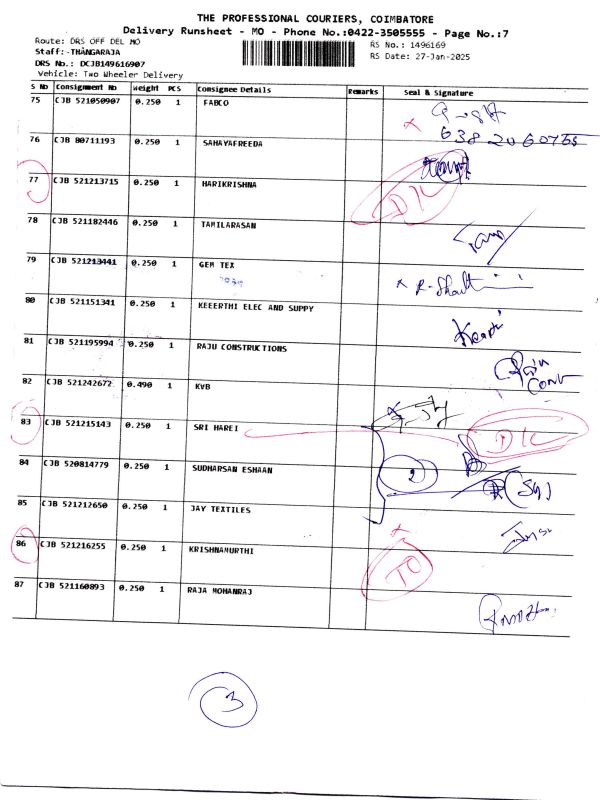 THE PROFESSIONAL COURIERS, COIMBATORE
Delivery Runsheet - MO - Phone No.:0422-3505555 - Page No.:7
Route: DRS OFF DEL MO
RS No.: 1496169
Staff:-THANGARAJA
RS Date: 27-Jan-2025
DRS No.: DCJB149616907
Vehicle: Two Wheeler Delivery
S No Consignment No Weight PCS Consignee Details Remarks Seal & Signature
75 CJB 521050907 0.250 1 FABCO
76 CJB 80711193 0.250 1 SAHAYAFREEDA
77 CJB 521213715 0.250 1 HARIKRISHNA D/L
78 CJB 521182446 0.250 1 TAMILARASAN
79 CJB 521213441 0.250 1 GEM TEX
80 CJB 521151341 0.250 1 KEEERTHI ELEC AND SUPPY
81 CJB 521195994 0.250 1 RAJU CONSTRUCTIONS
82 CJB 521242672 0.490 1 KVB
83 CJB 521215143 0.250 1 SRI HAREI D/L
84 CJB 520814779 0.250 1 SUDHARSAN ESHAAN 2
85 CJB 521212650 0.250 1 JAY TEXTILES
86 CJB 521216255 0.250 1 KRISHNAMURTHI TO
87 CJB 521160893 0.250 1 RAJA MOHANRAJ
3